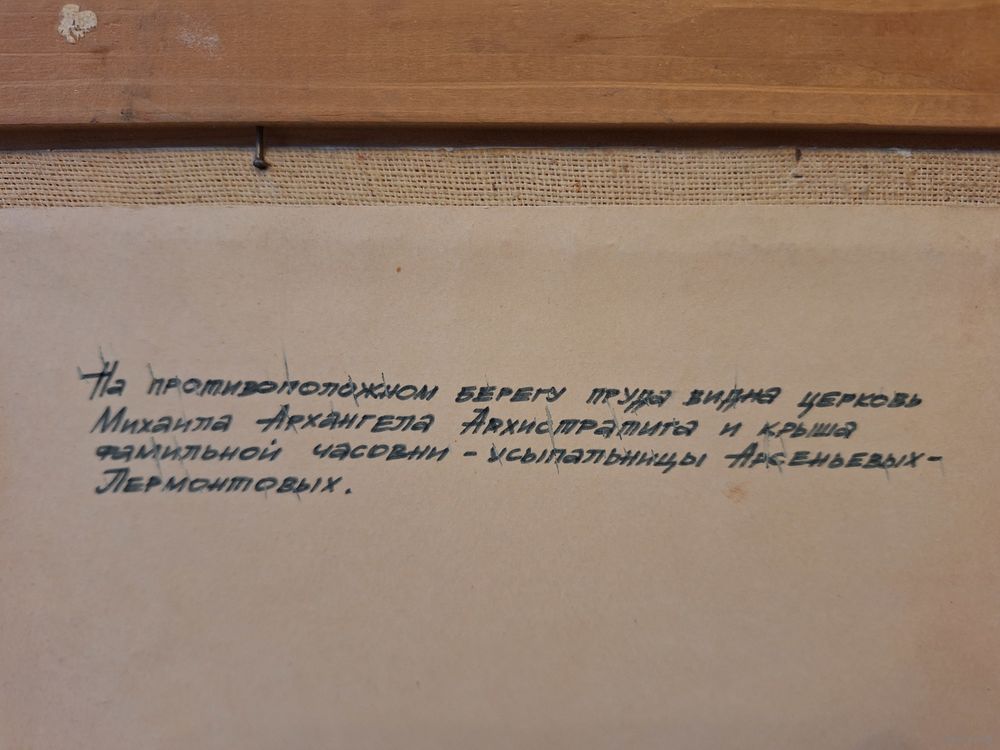 На противоположном берегу пруда видна церковь
Михаила Архангела Архистратига и крыша
фамильной часовни - усыпальницы Арсеньевых-
Лермонтовых.